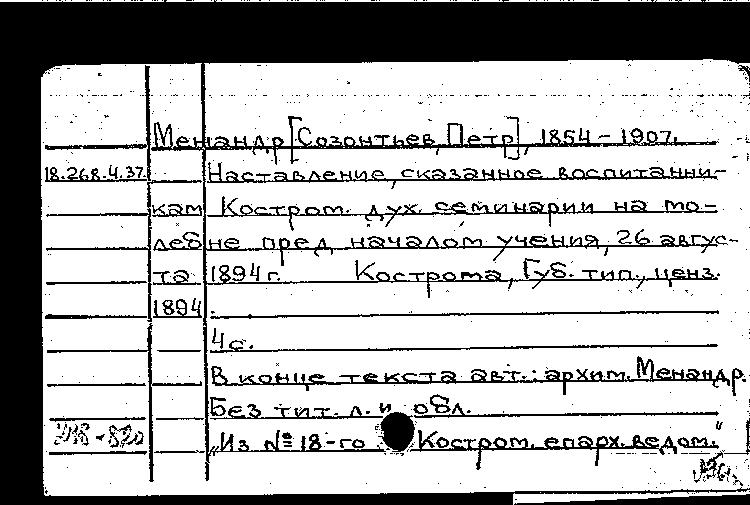 Менандр [Созонтьев, Петр], 1854 - 1907.
18.268.4.37 Наставление, сказанное воспитанни-
кам Костром. дух. семинарии на мо-
лебне пред началом учения, 26 авгус-
та 1894 г. Кострома, Губ. тип., ценз.
1894.
4 с.
В конце текста авт.: архим. Менандр.
Без тит. л. и обл.
„Из № 18-го Костром. епарх. ведом."